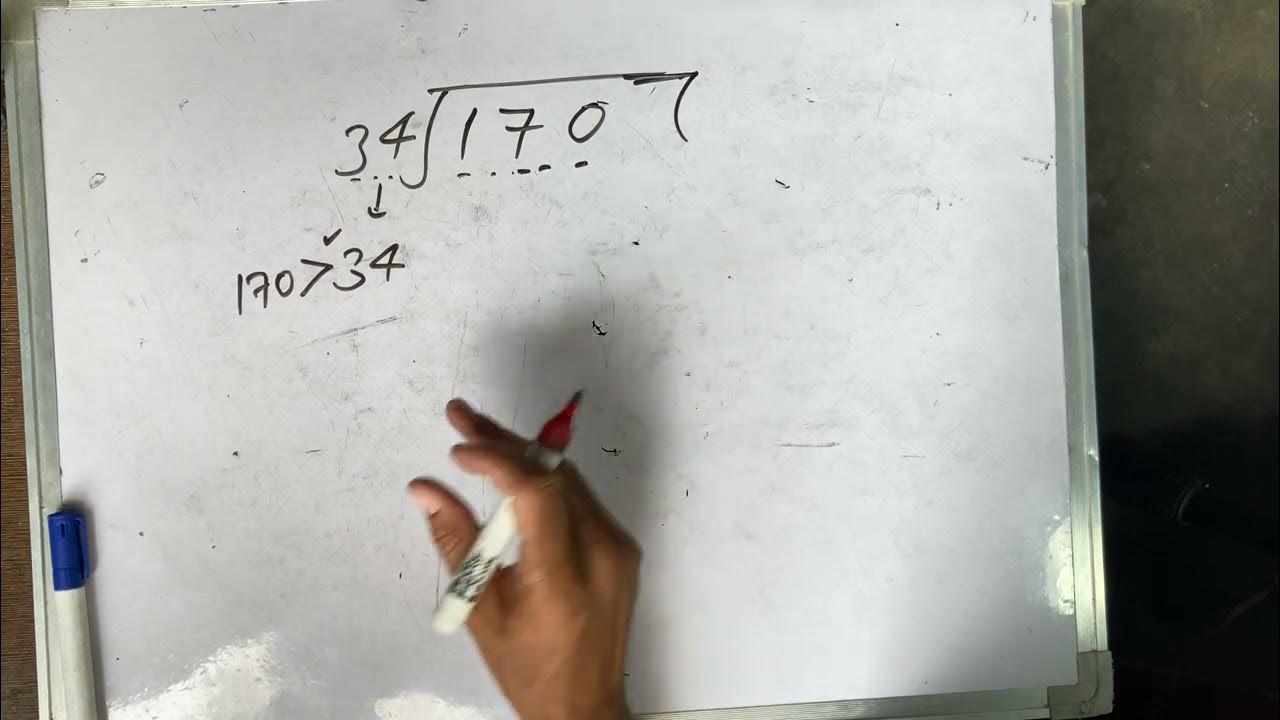 34 170
170>34